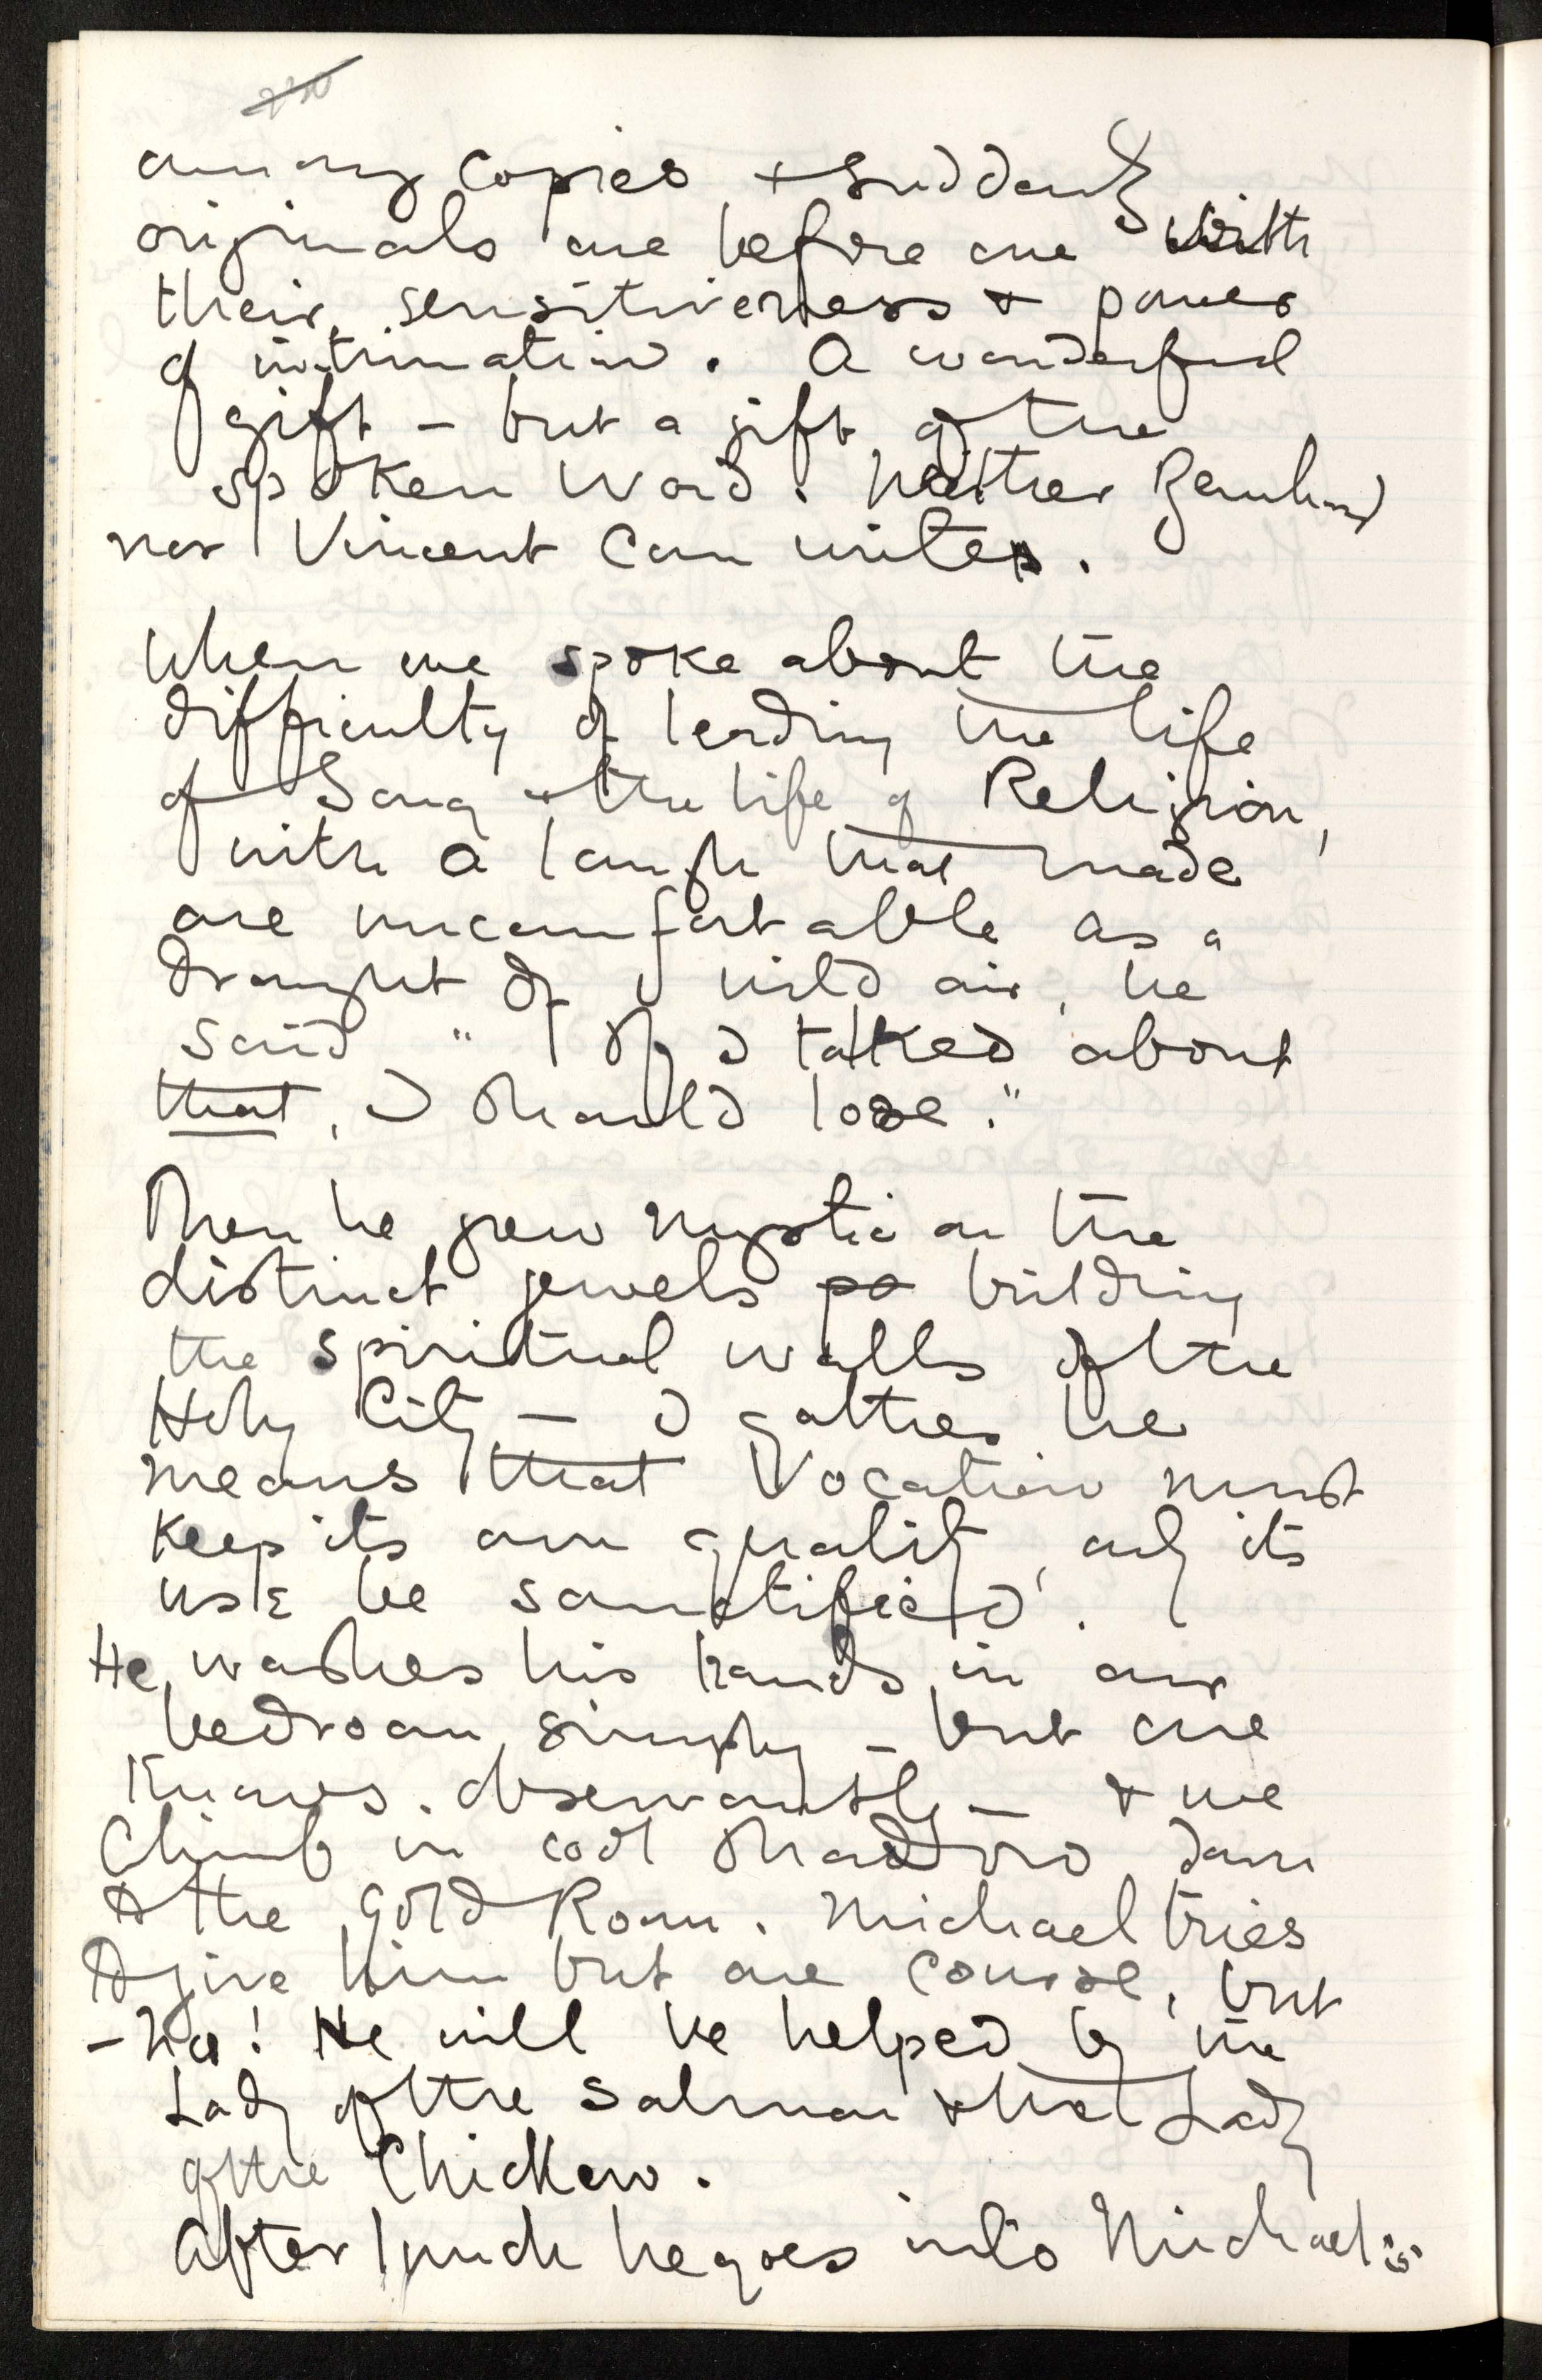 among copies & suddenly
originals are before one with
their sensitiveness & power
of intimation. A wonderful
gift – but a gift of the
spoken word. Neither Bernhard
nor Vincent can write.
When we spoke about the
difficulty of leading the life
of Song & the life of Religion,
with a laugh that made
one uncomfortable as a
draught of wild air, he
said "If I talked about
that, I should lose."
Then he grew mystic on the
distinct jewels po building
the spiritual walls of the
Holy City – I gather he
means that Vocation must
keep its own quality, only its
use be sanctified.
He washes his hands in our
bedroom simply – but one
knows observantly – & we
climb in cool shadow down
to the Gold Room. Michael tries
to give him but one course, but
– no! He will be helped by the
Lady of the Salmon & the Lady
of the Chicken.
After lunch he goes into Michael's